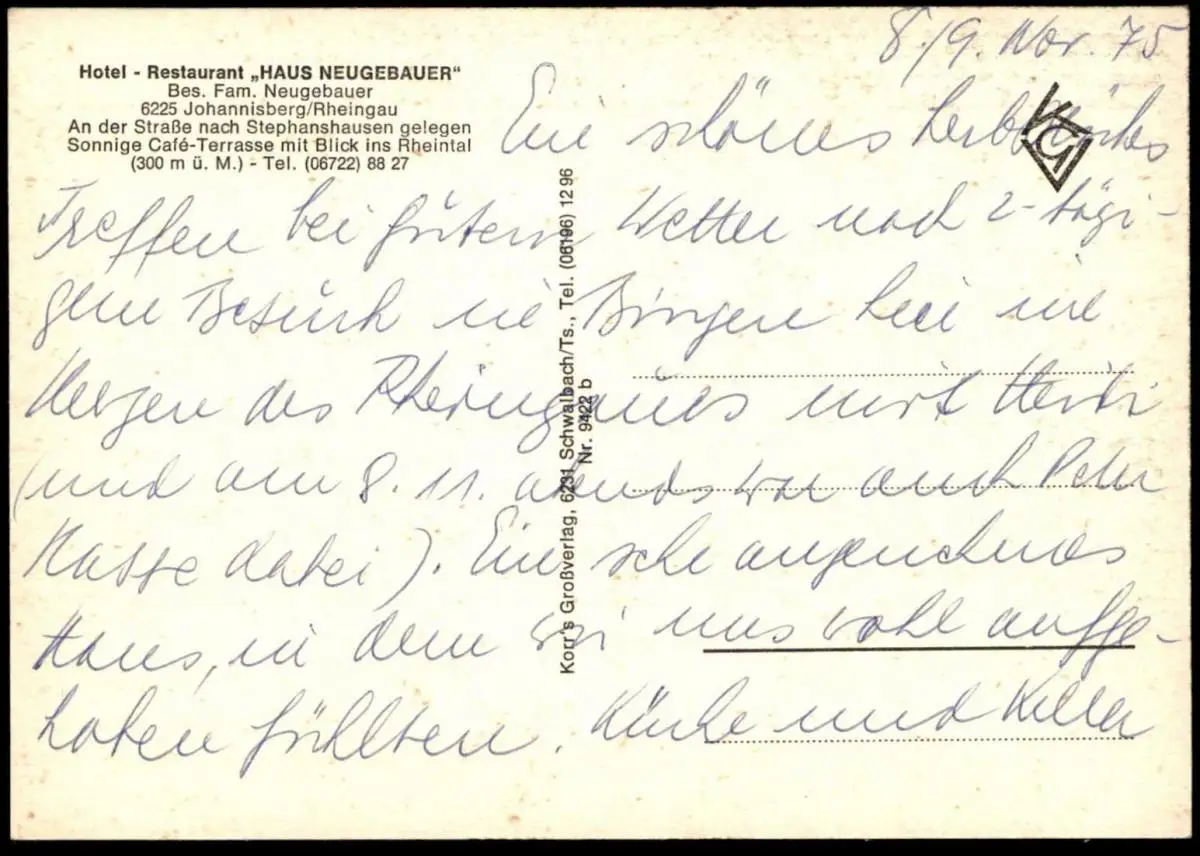 8./9. Nov. 75
Hotel - Restaurant „HAUS NEUGEBAUER“
Bes. Fam. Neugebauer
6225 Johannisberg/Rheingau
An der Straße nach Stephanshausen gelegen
Sonnige Café-Terrasse mit Blick ins Rheintal
(300 m ü. M.) - Tel. (06722) 88 27
Ein schönes herbstliches
Treffen bei gutem Wetter nach 2-tägi-
gem Besuch in Bingen hier im
Herzen des Rheingaues mit
(und am 8. 11. abends war auch Peter
Hasse dabei). Ein sehr angenehmes
Haus, in dem wir uns wohl aufge-
hoben fühlten. Küche und Keller
Korr's Großverlag, 6231 Schwalbach/Ts., Tel. (06196) 12 96
Nr. 9422 b